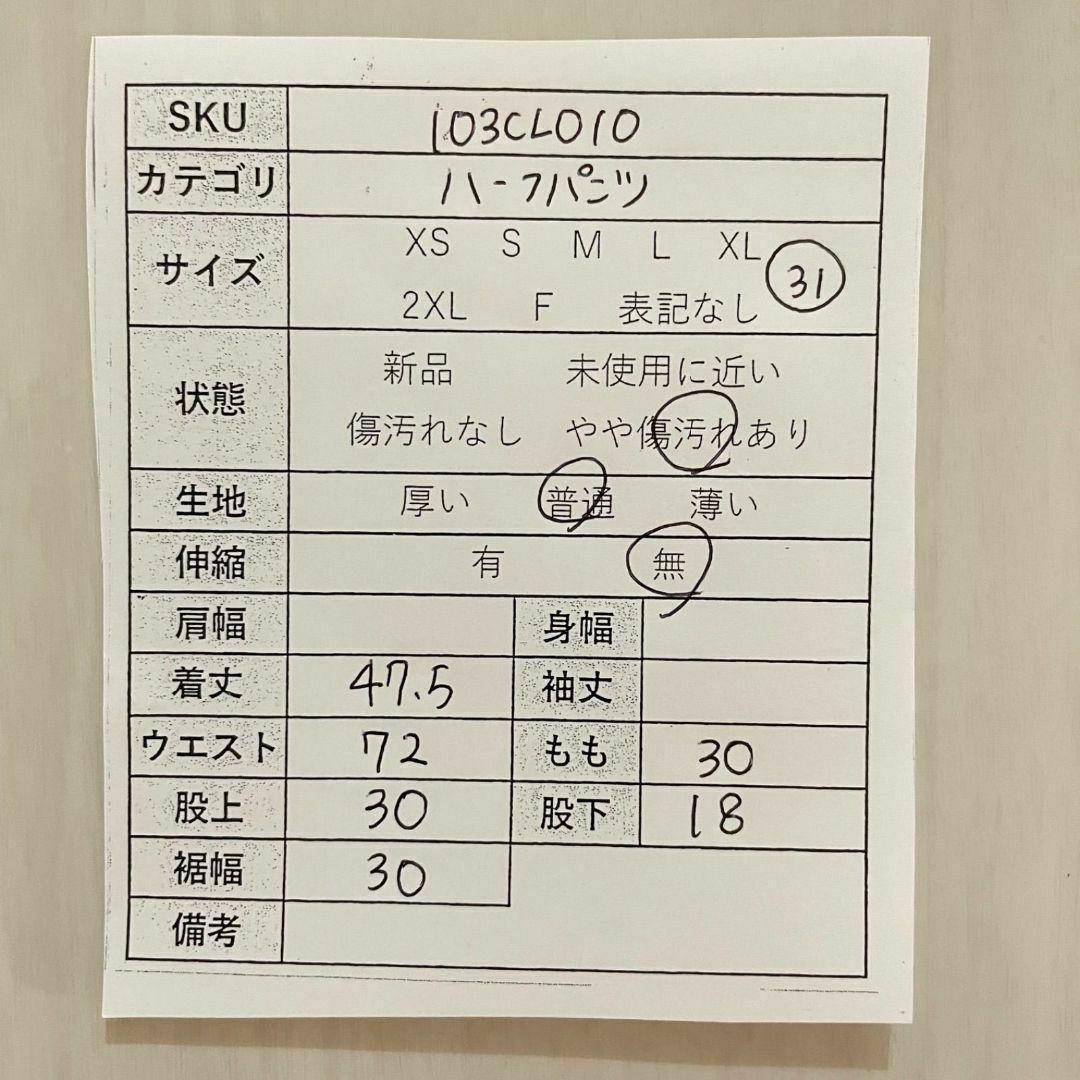 SKU 103CL010
カテゴリ ハーフパンツ
サイズ XS S M L XL 31
2XL F 表記なし
状態 新品 未使用に近い
傷汚れなし やや傷汚れあり
生地 厚い 普通 薄い
伸縮 有 無
肩幅 身幅
着丈 47.5 袖丈
ウエスト 72 もも 30
股上 30 股下 18
裾幅 30
備考